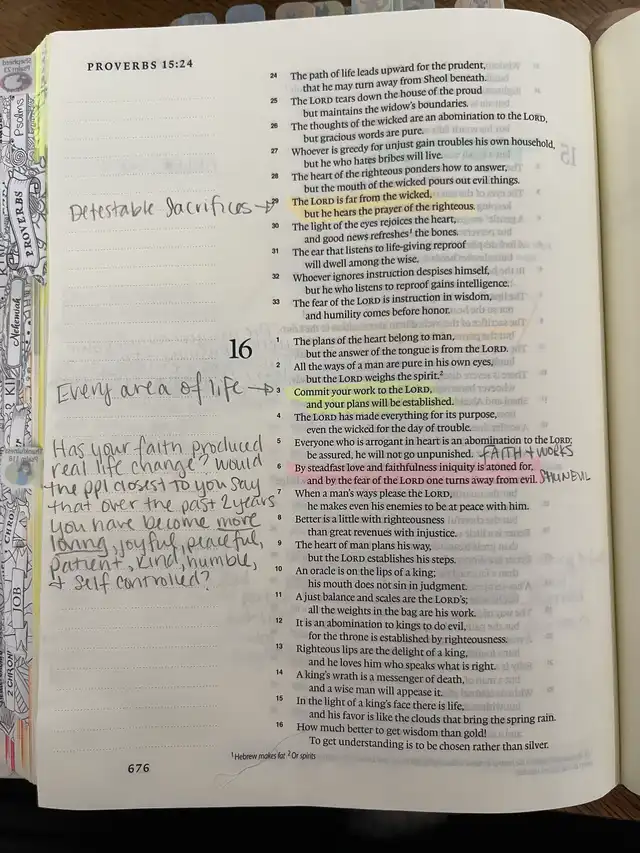 PROVERBS 15:24
24 The path of life leads upward for the prudent,
that he may turn away from Sheol beneath.
25 The LORD tears down the house of the proud
but maintains the widow's boundaries.
26 The thoughts of the wicked are an abomination to the LORD,
but gracious words are pure.
27 Whoever is greedy for unjust gain troubles his own household,
but he who hates bribes will live.
28 The heart of the righteous ponders how to answer,
but the mouth of the wicked pours out evil things.
Detestable Sacrifices →
29 The LORD is far from the wicked,
but he hears the prayer of the righteous.
30 The light of the eyes rejoices the heart,
and good news refreshes¹ the bones.
31 The ear that listens to life-giving reproof
will dwell among the wise.
32 Whoever ignores instruction despises himself,
but he who listens to reproof gains intelligence.
33 The fear of the LORD is instruction in wisdom,
and humility comes before honor.
16
1 The plans of the heart belong to man,
but the answer of the tongue is from the LORD.
2 All the ways of a man are pure in his own eyes,
but the LORD weighs the spirit.²
Every area of life →
3 Commit your work to the LORD,
and your plans will be established.
4 The LORD has made everything for its purpose,
even the wicked for the day of trouble.
5 Everyone who is arrogant in heart is an abomination to the LORD;
be assured, he will not go unpunished. FAITH + WORKS
6 By steadfast love and faithfulness iniquity is atoned for,
and by the fear of the LORD one turns away from evil. SHUN EVIL
7 When a man's ways please the LORD,
he makes even his enemies to be at peace with him.
8 Better is a little with righteousness
than great revenues with injustice.
9 The heart of man plans his way,
but the LORD establishes his steps.
10 An oracle is on the lips of a king;
his mouth does not sin in judgment.
11 A just balance and scales are the LORD's;
all the weights in the bag are his work.
12 It is an abomination to kings to do evil,
for the throne is established by righteousness.
13 Righteous lips are the delight of a king,
and he loves him who speaks what is right.
14 A king's wrath is a messenger of death,
and a wise man will appease it.
15 In the light of a king's face there is life,
and his favor is like the clouds that bring the spring rain.
16 How much better to get wisdom than gold!
To get understanding is to be chosen rather than silver.
Has your faith produced
real life change? Would
the ppl closest to you say
that over the past 2 years
you have become more
loving, joyful, peaceful,
patient, kind, humble,
+ self controlled?
¹ Hebrew makes fat ² Or spirits
676
Psalms
PROVERBS
Nehemiah
JOB
2 CHRON
15